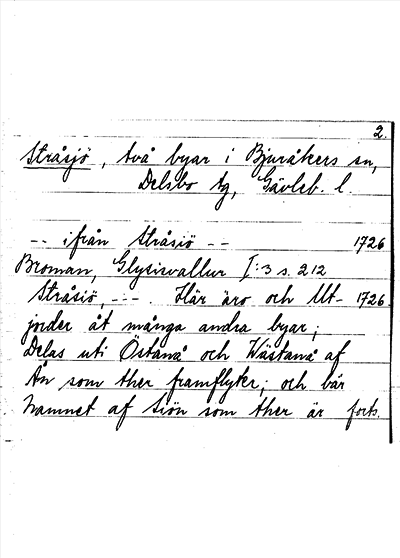 2.
Stråsjö, två byar i Bjuråkers sn,
Delsbo tg, Gävleb. l.
-- ifrån Stråsiö -- 1726
Broman, Glysisvallur I:3 s. 212
Stråsiö, --- . Här äro och Ut- 1726
jorder åt många andra byar;
Delas uti Östanå och Wästanå af
Ån som ther framflyter; och bär
Namnet af Siön som ther är forts.